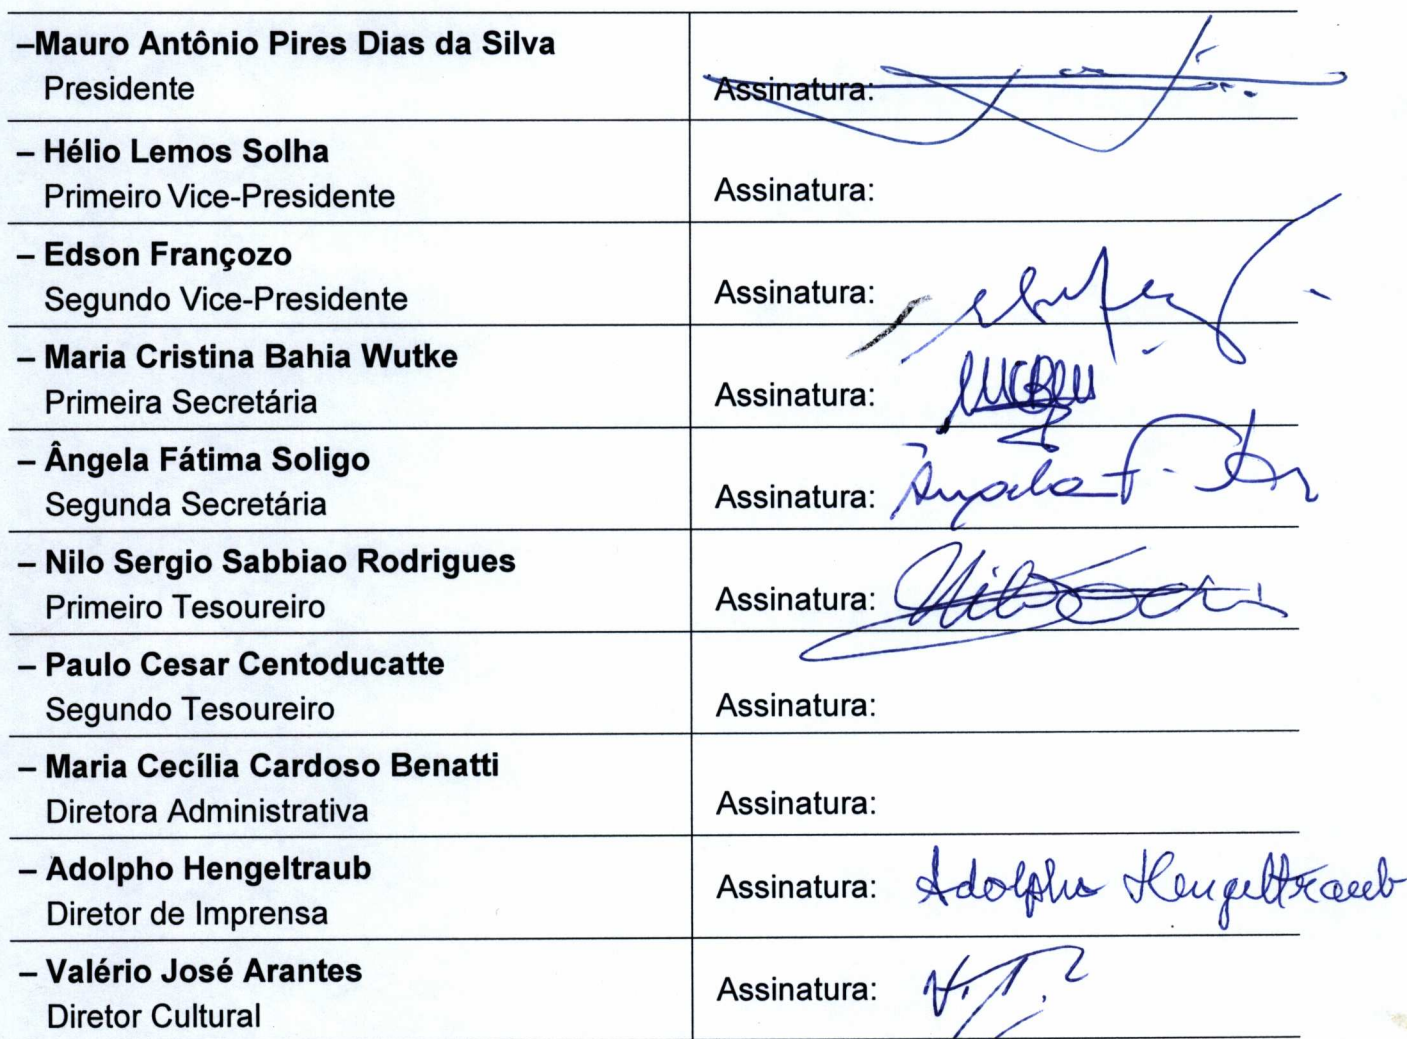 –Mauro Antônio Pires Dias da Silva
Presidente
Assinatura:
– Hélio Lemos Solha
Primeiro Vice-Presidente
Assinatura:
– Edson Françozo
Segundo Vice-Presidente
Assinatura:
– Maria Cristina Bahia Wutke
Primeira Secretária
Assinatura:
– Ângela Fátima Soligo
Segunda Secretária
Assinatura: Ângela F.
– Nilo Sergio Sabbiao Rodrigues
Primeiro Tesoureiro
Assinatura: Nilo
– Paulo Cesar Centoducatte
Segundo Tesoureiro
Assinatura:
– Maria Cecília Cardoso Benatti
Diretora Administrativa
Assinatura:
– Adolpho Hengeltraub
Diretor de Imprensa
Assinatura: Adolpho Hengeltraub
– Valério José Arantes
Diretor Cultural
Assinatura: